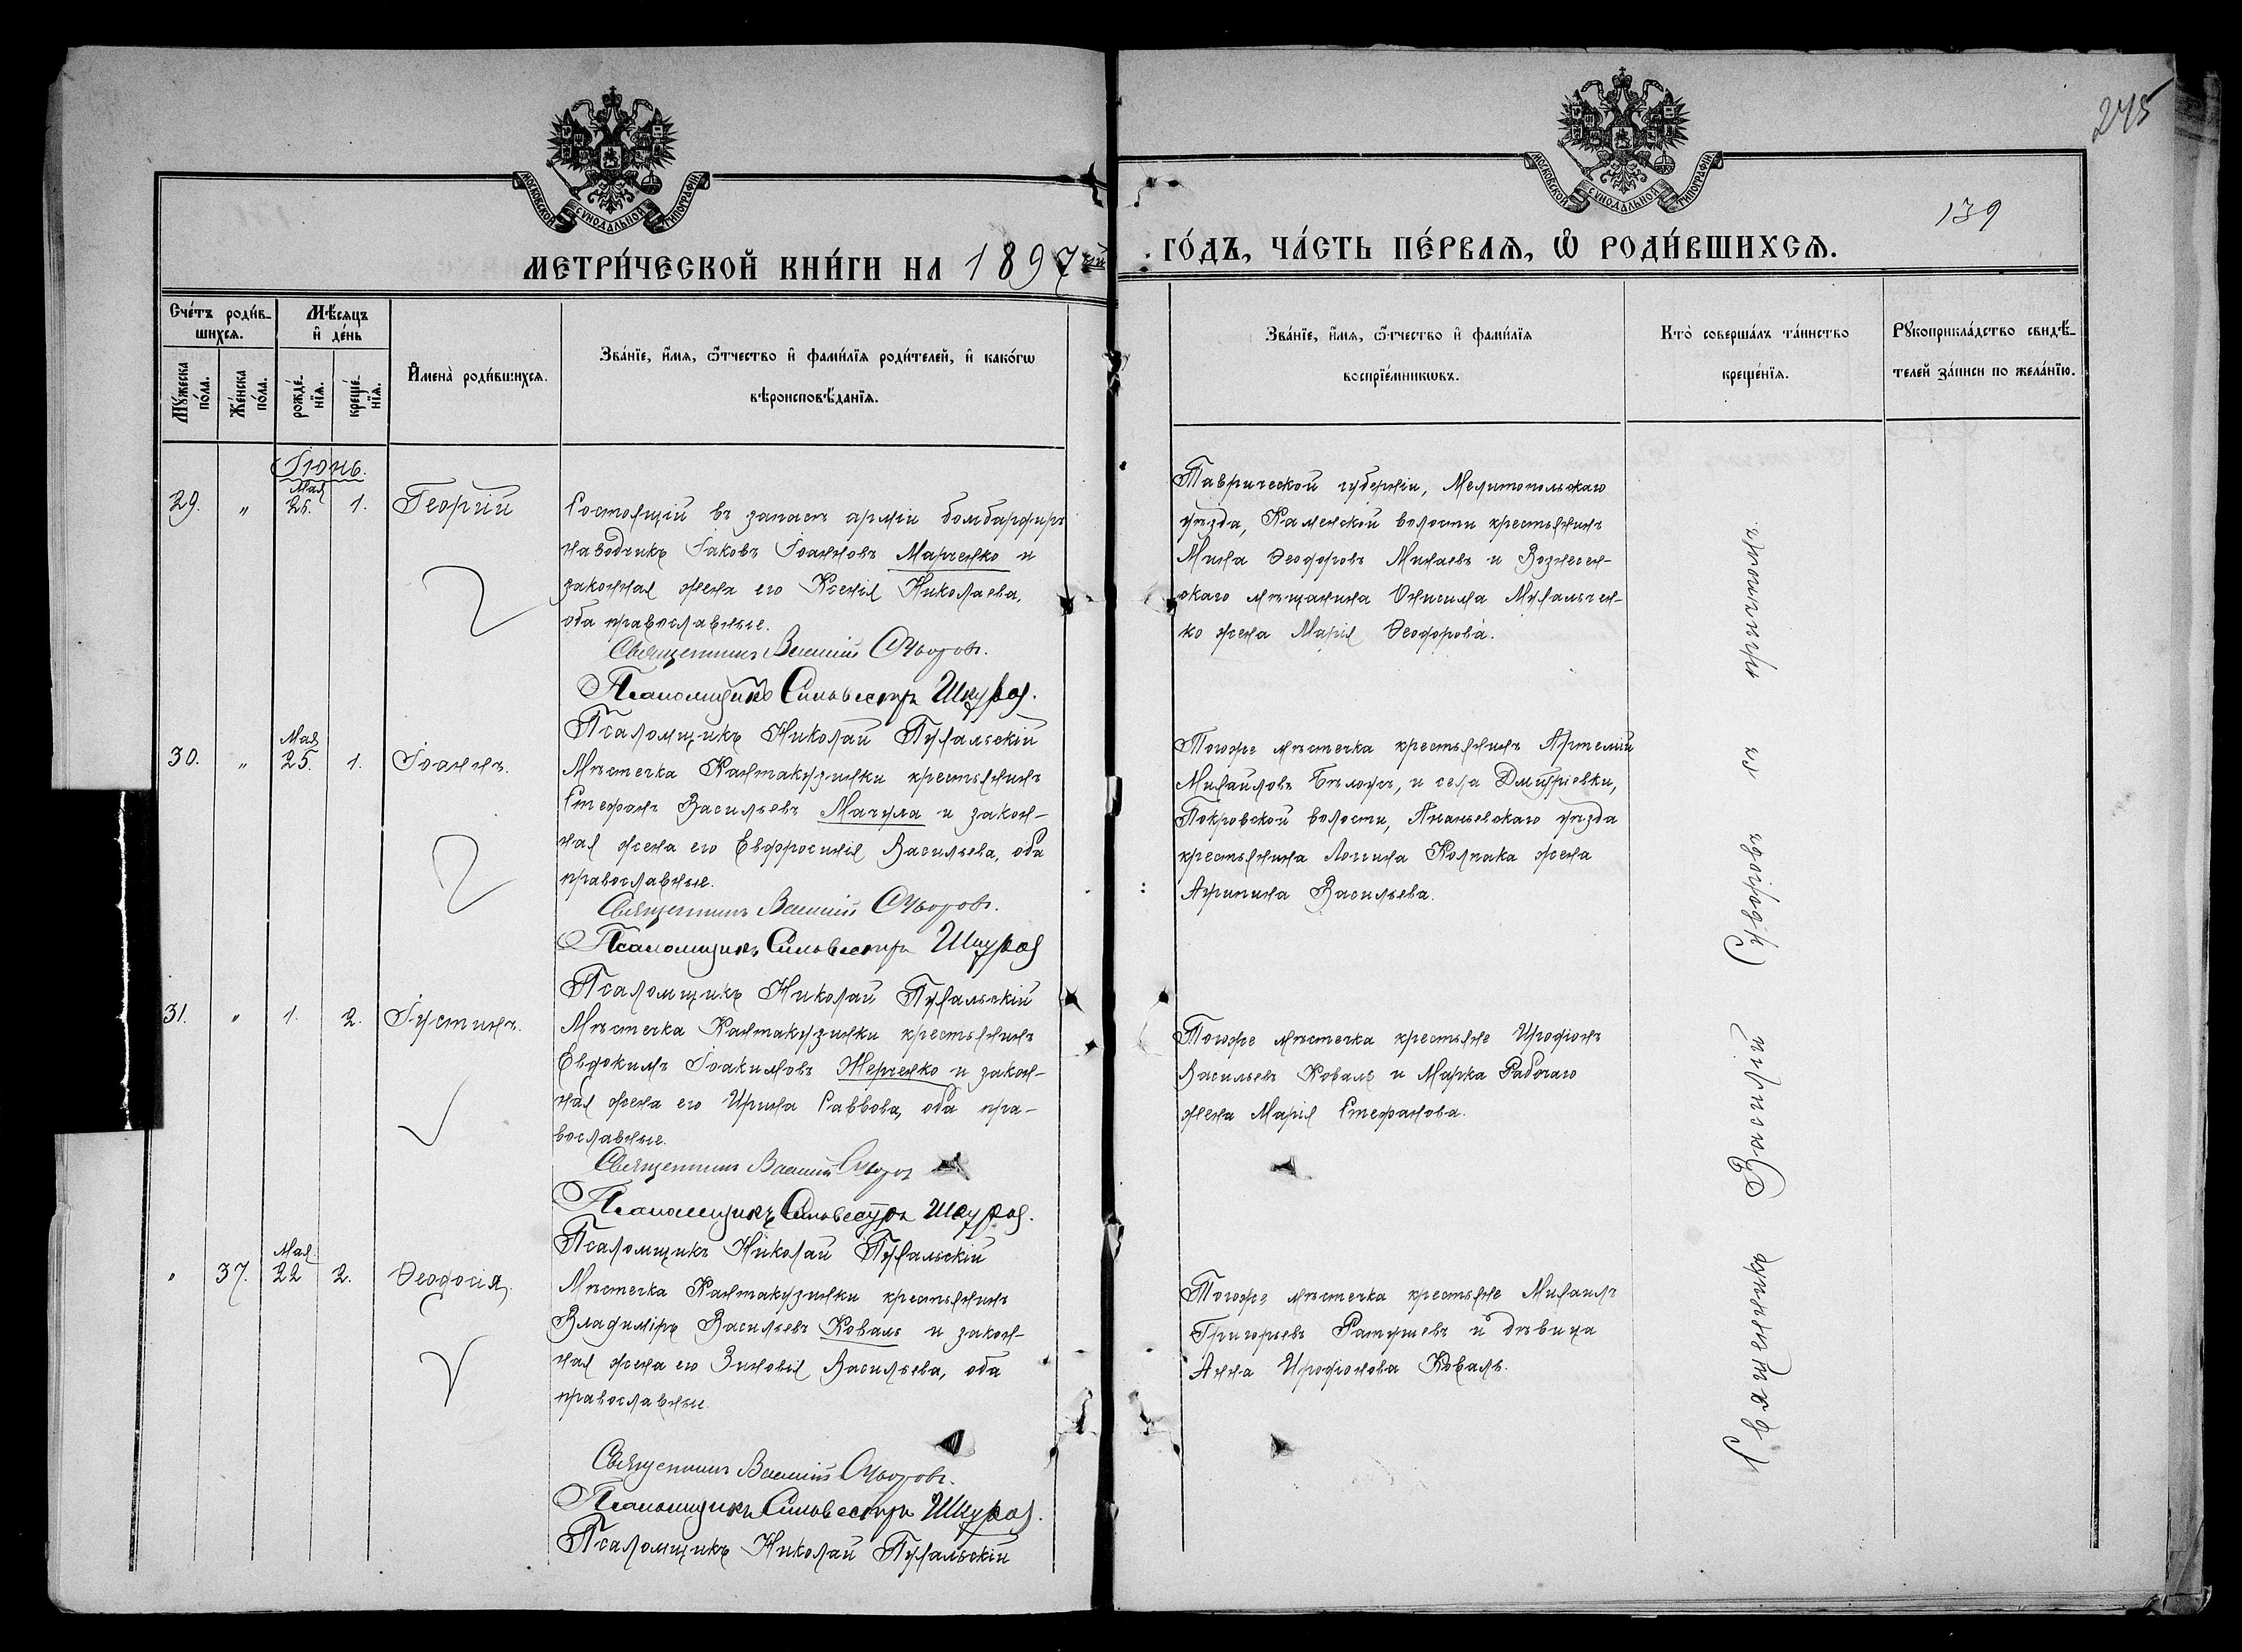 275
139
МОСКОВСКОЙ СѴНОДАЛЬНОЙ ТИПОГРАФІИ
МОСКОВСКОЙ СѴНОДАЛЬНОЙ ТИПОГРАФІИ
МЕТРИ́ЧЕСКОЙ КНИ́ГИ НА 1897ый
ГО́ДЪ, ЧА́СТЬ ПЕ́РВАѦ, Ѡ҆ РОДИ́ВШИХСѦ.
Сче́тъ роди́в-
шихсѧ.
Мꙋ́жеска по́ла.
Же́нска по́ла.
Мѣ́сѧцъ
и҆ де́нь
рожде́-
нїѧ.
креще́-
нїѧ.
И҆мена̀ роди́вшихсѧ.
Зва́нїе, и҆́мѧ, ѻ҆́тчество и҆ фами́лїѧ роди́телей, и҆ како́гѡ
вѣроисповѣ́данїѧ.
Зва́нїе, и҆́мѧ, ѻ҆́тчество и҆ фами́лїѧ
воспрїе́мникѡвъ.
Кто̀ соверша́лъ та́инство
креще́нїѧ.
Рꙋкоприкла́дство свидѣ́-
телей за́писи по жела́нїю.
Іюнь.
29. " Мая 25. 1. Георгій
Состоящій въ запасѣ арміи бомбардиръ
наводчикъ Іаковъ Іоанновъ Марченко и
законная жена его Ксенія Николаева,
оба православные.
Священникъ Василій Суворовъ.
Псаломщикъ Сильвестръ Шкурой.
Псаломщикъ Николай Пухальскій
Таврической губерніи, Мелитопольскаго
уѣзда, Каменской волости крестьянинъ
Мина Ѳеодоровъ Минаевъ и Вознесен-
скаго мѣщанина Онисима Михальчен-
ко жена Марія Ѳеодорова.
30. " Мая 25. 1. Іоаннъ.
Мѣстечка Кантакузинки крестьянинъ
Стефанъ Васильевъ Мачула и закон-
ная жена его Евфросинія Васильева, оба
православные.
Священникъ Василій Суворовъ.
Псаломщикъ Сильвестръ Шкурой
Псаломщикъ Николай Пухальскій
Тогоже мѣстечка крестьянинъ Артемій
Михайловъ Бѣлоусъ, и села Дмитріевки,
Покровской волости, Ананьевскаго уѣзда
крестьянина Логгина Колпака жена
Агрипина Васильева.
31. " 1. 2. Іустинъ.
Мѣстечка Кантакузинки крестьянинъ
Евдокимъ Іоакимовъ Нерченко и закон-
ная жена его Ирина Саввова, оба пра-
вославные.
Священникъ Василій Суворов
Псаломщикъ Сильвестръ Шкурой.
Псаломщикъ Николай Пухальскій
Тогоже мѣстечка крестьяне Иродіонъ
Васильевъ Коваль и Марка Рабочаго
жена Марія Стефанова.
" 37. Мая 22 2. Ѳеодосія.
Мѣстечка Кантакузинки крестьянинъ
Владиміръ Васильевъ Коваль и закон-
ная жена его Зиновія Васильева, оба
православные.
Священникъ Василій Суворовъ.
Псаломщикъ Сильвестръ Шкурой.
Псаломщикъ Николай Пухальскій
Тогоже мѣстечка крестьяне Михаилъ
Григорьевъ и дѣвица
Анна Иродіонова Коваль.
Священникъ Василій Суворовъ съ причтомъ.